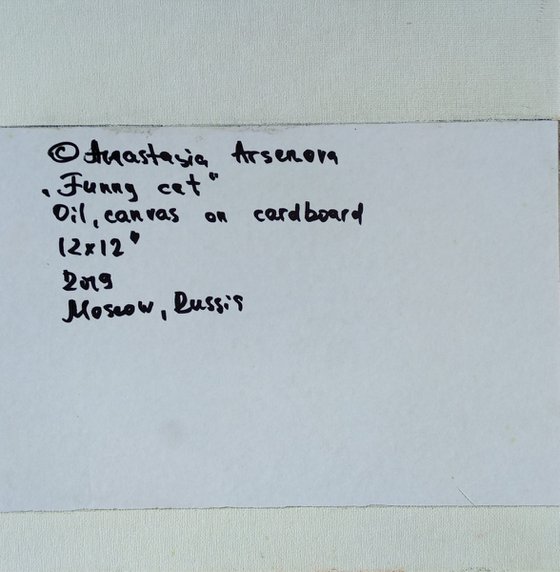 © Anastasia Arsenova
„Funny cat"
Oil, canvas on cardboard
12x12"
2019
Moscow, Russia